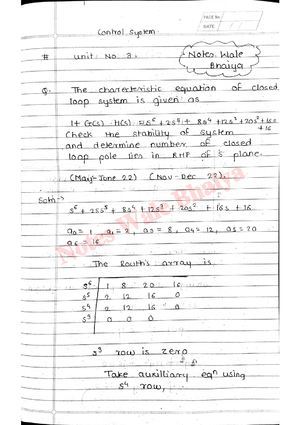 PAGE No.
Control System.
# Unit: No. 3.
Notes Wale
Bhaiya
Q. The charecteristic equation of closed
loop system is given as
1+ G(s). H(s) = s⁶ + 2s⁵ + 8s⁴ + 12s³ + 20s² + 16s
+ 16
Check the stability of system
and determine number of closed
loop pole lies in RHP of 's' plane.
(May-June 22) (Nov-Dec 22).
Soln:→
s⁶ + 2s⁵ + 8s⁴ + 12s³ + 20s² + 16s + 16
a₀ = 1, a₁ = 2, a₂ = 8, a₃ = 12, a₄ = 20
a₆ = 16
The Routh's array is
s⁶ 1 8 20 16
s⁵ 2 12 16 0
s⁴ 2 12 16 0
s³ 0 0 0
s³ row is zero
Take auxilliary eqⁿ using
s⁴ row,
Notes Wale Bhaiya